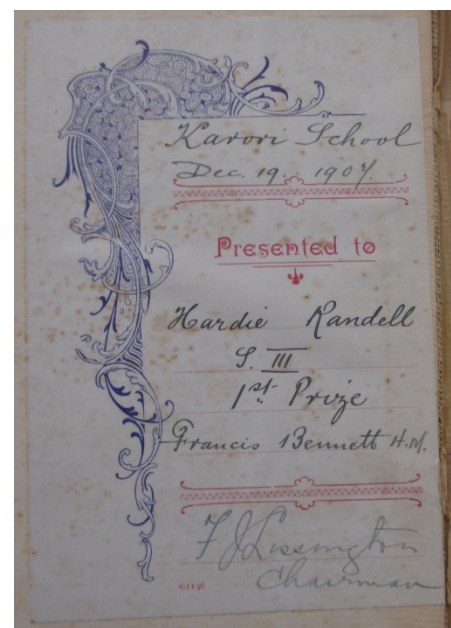 Karori School
Dec. 19. 1907.
Presented to
Hardie Randell
S. III
1st Prize
Francis Bennett H.M.
F J Lissington
Chairman